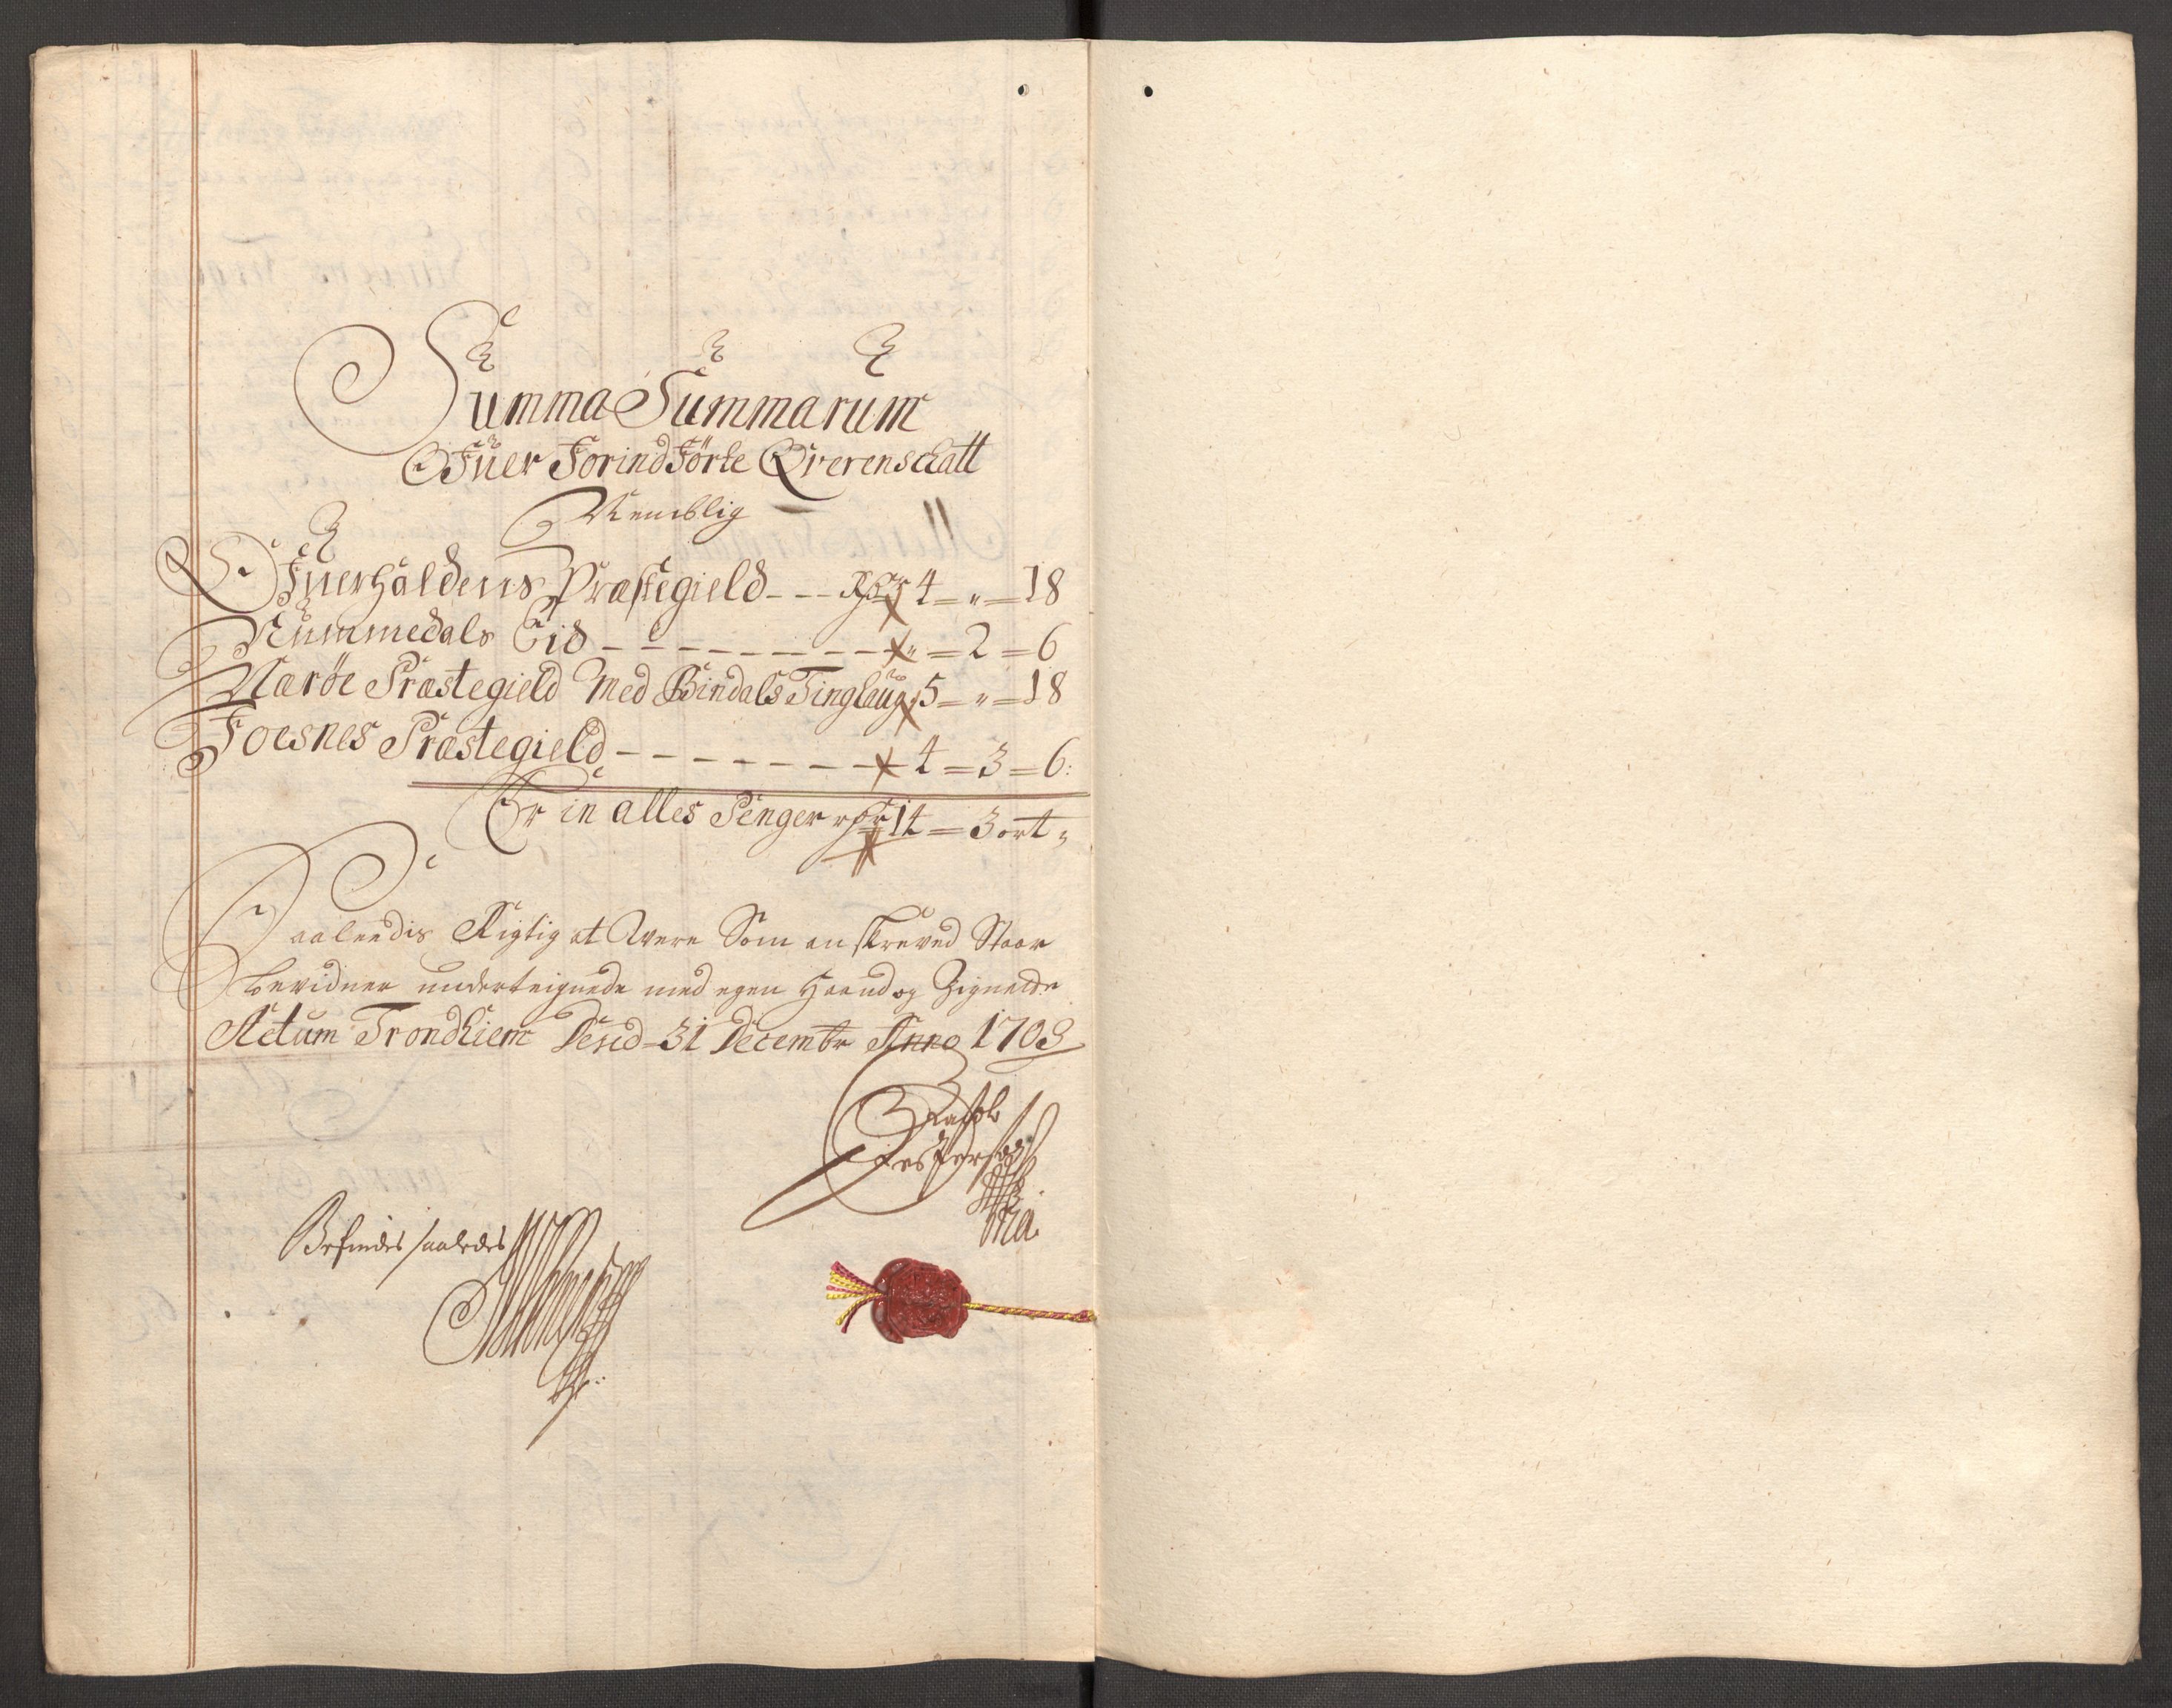 Summa Summarum
Ofuer Forindförte Qverenschatt
Nemblig
Ofuerhaldens Præstegield - - - Rdr 4 = „ = 18
Nummedals Eid - - - - - - - - - „ = 2 = 6
Nærøe Præstegield Med Bindals Tinglaug 5 = „ = 18
Foesnes Præstegield - - - - - - - 4 = 3 = 6:
Er in alles Penger rdr 14 = 3 ort „
Saaleedis Rigtig at Være Som anskreved Staar
bevidner underteignede med egen Haand og Zignette
Actum Trondhiem Desid 31 Decembr Anno 1703
Jespersøn
Befindes saaledes